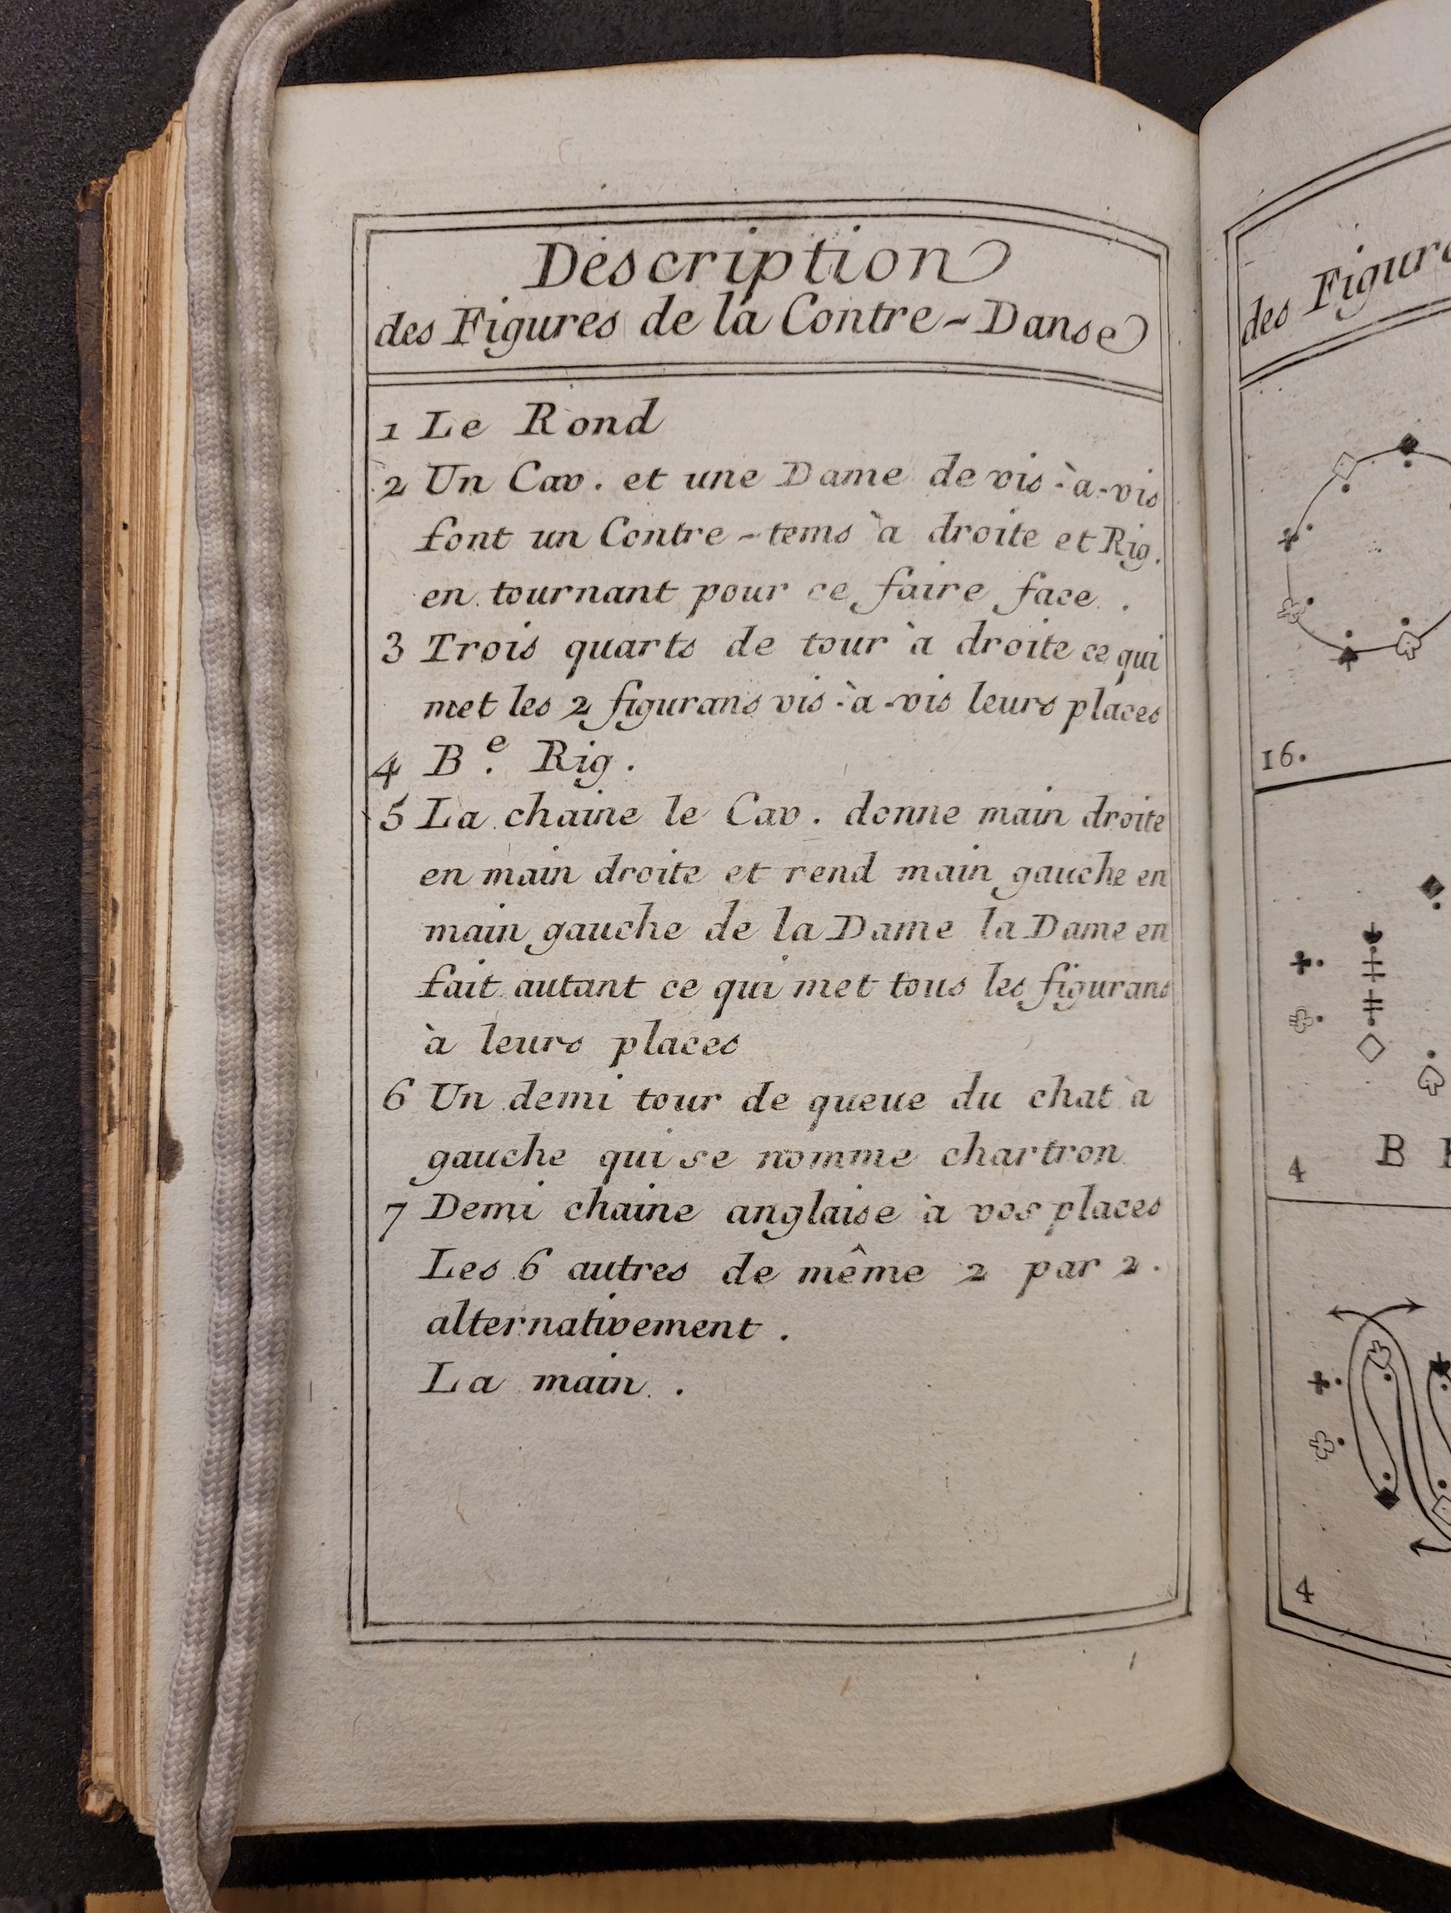 Description
des Figures de la Contre-Danse
1 Le Rond
2 Un Cav. et une Dame de vis-à-vis
font un Contre-tems à droite et Rig.
en tournant pour ce faire face.
3 Trois quarts de tour à droite ce qui
met les 2 figurans vis-à-vis leurs places
4 B.e Rig.
5 La chaine le Cav. donne main droite
en main droite et rend main gauche en
main gauche de la Dame la Dame en
fait autant ce qui met tous les figurans
à leurs places
6 Un demi tour de queue du chat à
gauche qui se nomme chartron
7 Demi chaine anglaise à vos places
Les 6 autres de même 2 par 2.
alternativement.
La main.
des Figure
16.
4 B
4